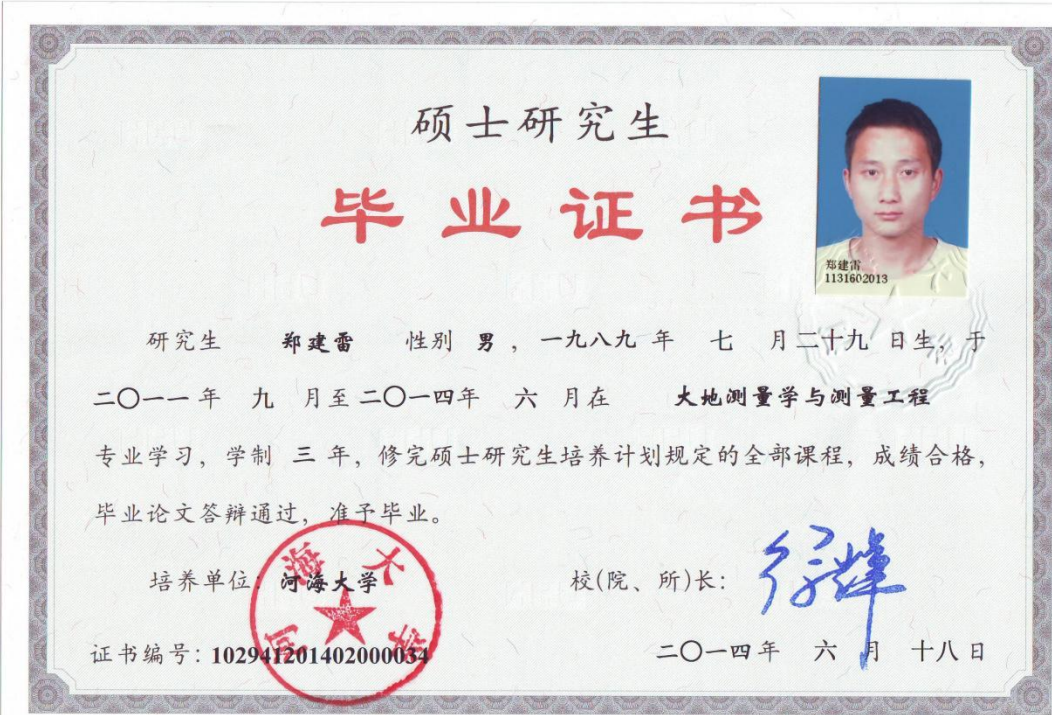 硕士研究生
毕业证书
郑建雷
1131602013
研究生 郑建雷 性别 男，一九八九年 七 月二十九日生，于
二〇一一年 九 月至二〇一四年 六 月在 大地测量学与测量工程
专业学习，学制 三 年，修完硕士研究生培养计划规定的全部课程，成绩合格，
毕业论文答辩通过，准予毕业。
培养单位：河海大学
校(院、所)长：
河海大学
证书编号：102941201402000034
二〇一四年 六 月 十八日